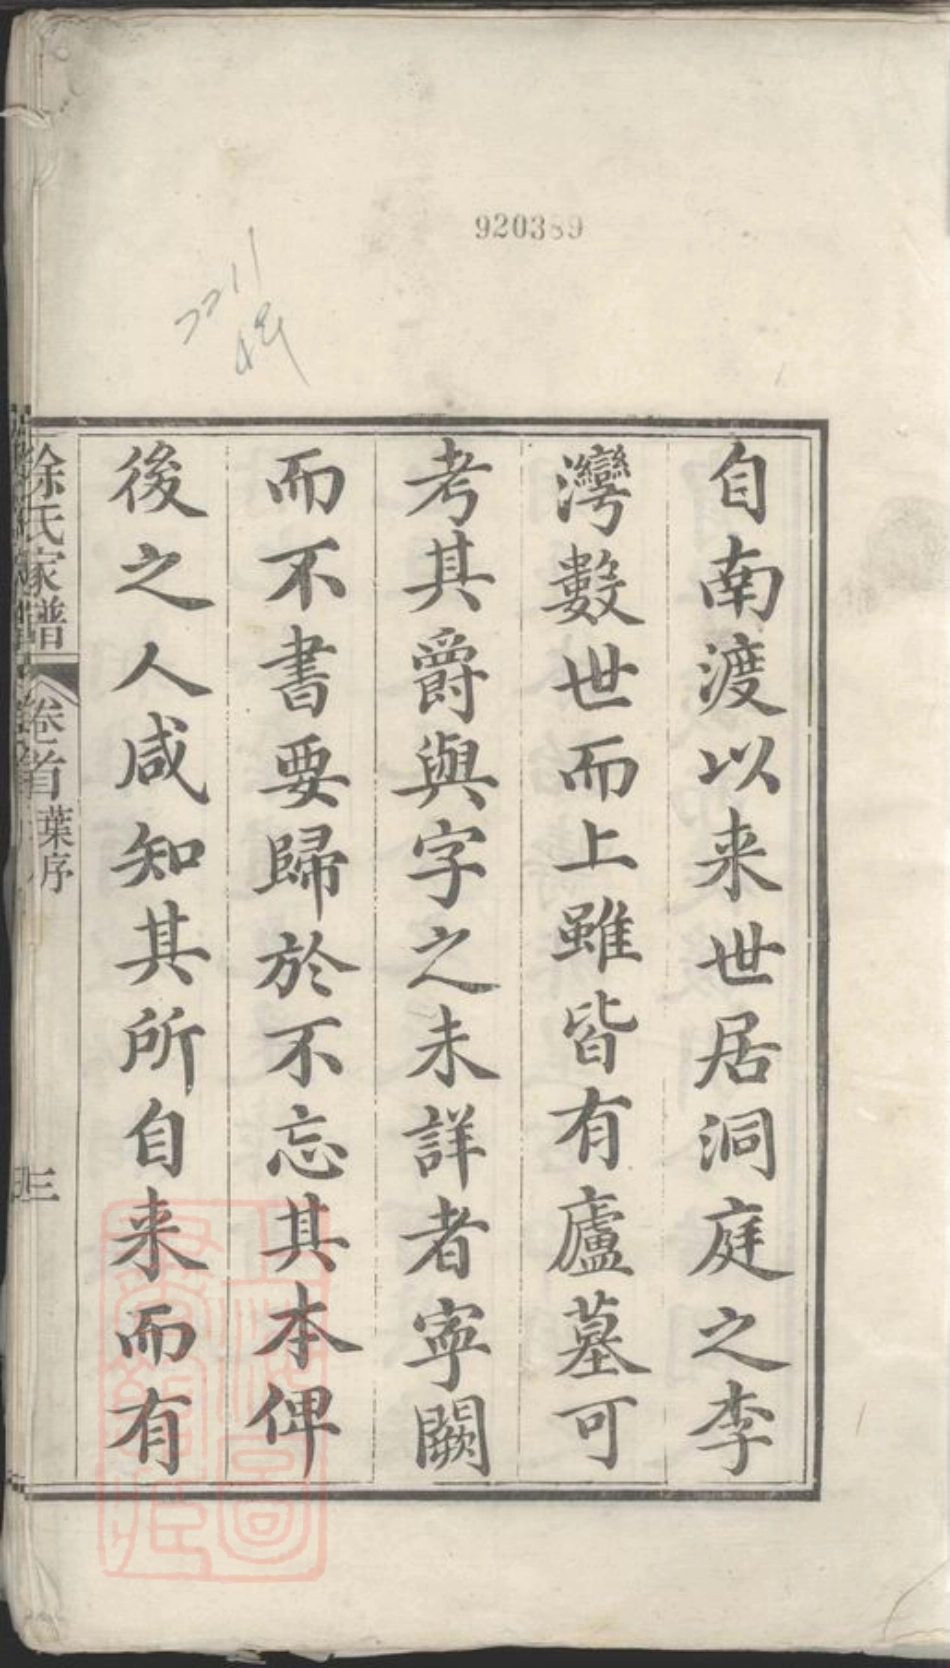 920389
2211
自南渡以来世居洞庭之李
灣數世而上雖皆有廬墓可
考其爵與字之未詳者寧闕
而不書要歸於不忘其本俾
後之人咸知其所自来而有
徐氏家譜
卷首
葉序
三